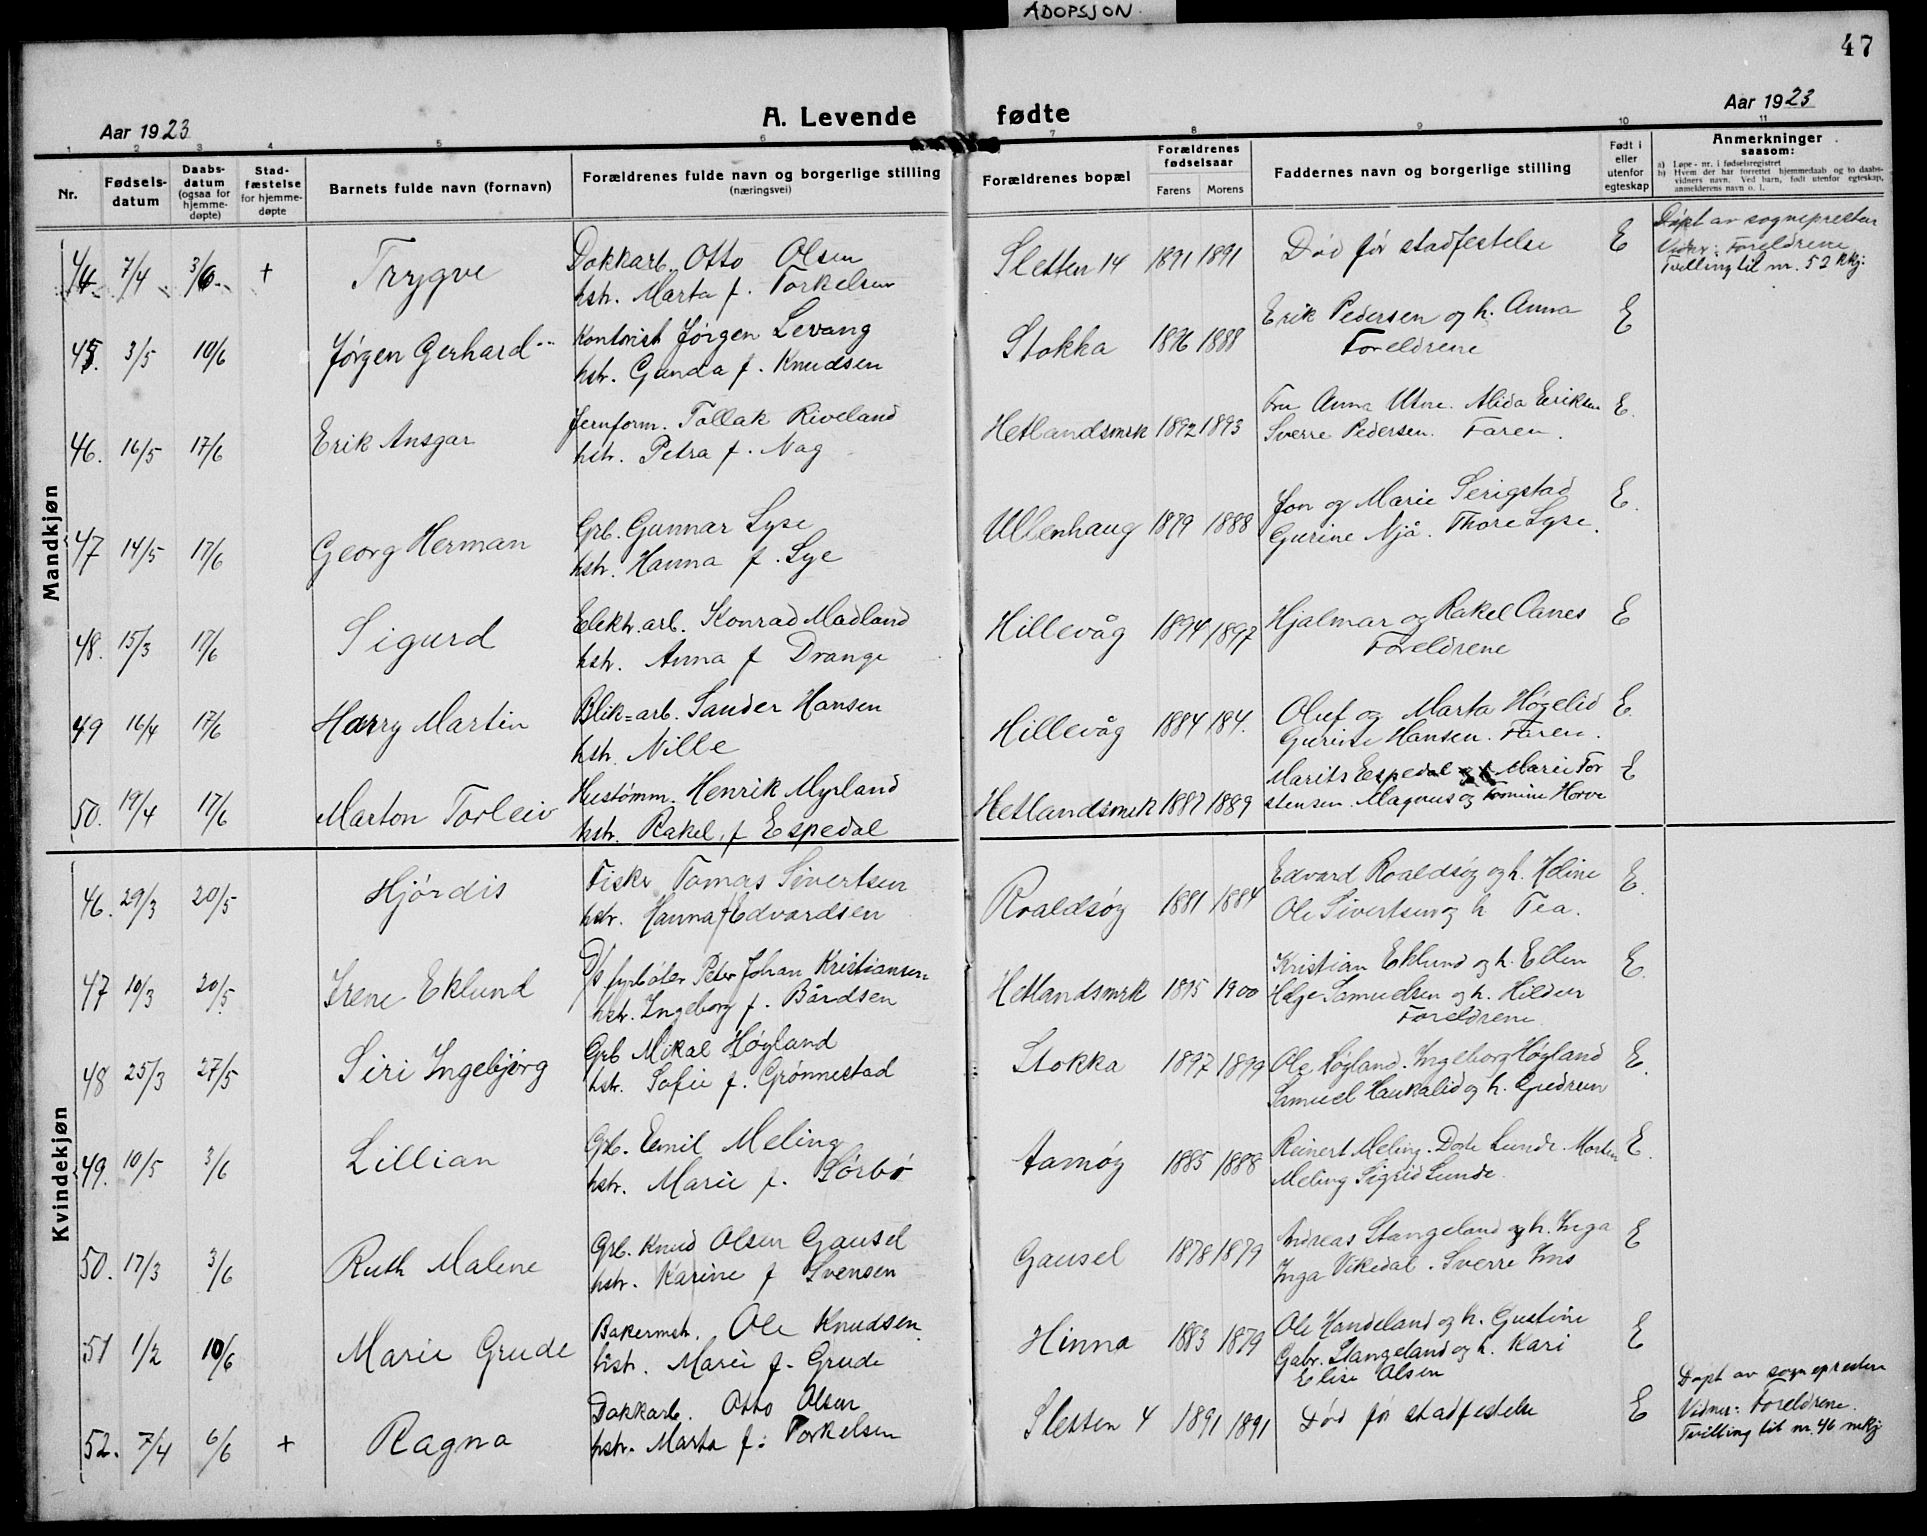 ADOPSJON
47
Aar 1923
A. Levende fødte
Aar 1923
1 2 3 4 5 6 7 8 9 10 11
Nr.
Fødsels-
datum
Daabs-
datum
(ogsaa for
hjemme-
døpte)
Stad-
fæstelse
for hjemme-
døpte
Barnets fulde navn (fornavn)
Forældrenes fulde navn og borgerlige stilling
(næringsvei)
Forældrenes bopæl
Forældrenes
fødselsaar
Farens Morens
Faddernes navn og borgerlige stilling
Født i
eller
utenfor
egteskap
Anmerkninger
saasom:
a) Løpe-nr. i fødselsregistret
b) Hvem der har forrettet hjemmedaab og to daabs-
vidners navn. Ved barn, født utenfor egteskap,
anmelderens navn o. l.
Mandkjøn
44. 7/4 3/6 + Trygve
Dokkarb. Otto Olsen
hstr. Marta f. Torkelsen
Sletten 14 1891 1891
Død før stadfestelse
E
Døpt av sognepresten
Vidner: Foreldrene
Tvilling til nr. 52 kkj.
45. 3/5 10/6 Jørgen Gerhard
Kontorist Jørgen Levang
hstr. Gunda f. Knudsen
Stokka 1888
Erik Pedersen og h. Anna
Foreldrene
E
46. 16/5 17/6 Erik Ansgar
Jernform. Tollak Riveland
hstr. Petra f. Nag
Hetlandsmrk 1892 1893
Fru Anna Utne. Alida Eriksen
Sverre Pedersen. Faren.
E.
47 14/5 17/6 Georg Herman
Grb. Gunnar Lyse
hstr. Hanna f. Lye
Ullenhaug 1879 1888
Jon og Marie Serigstad
Gurine Njå. Thore Lyse.
E.
48. 15/3 17/6 Sigurd
Elektr.arb. Konrad Madland
hstr. Anna f Drange
Hillevåg 1894 1897
Hjalmar og Rakel Aanes
Foreldrene
E
49 16/4 17/6 Harry Martin
Blik=arb. Sander Hansen
hstr. Nille
Hillevåg 1884 184.
Oluf og Marta Høgelid
Gurine Hansen. Faren.
E.
50. 19/4 17/6 Marton Torleiv
Hustømm. Henrik Myrland
hstr. Rakel. f Espedal
Hetlandsmrk 1887 1889
Marits Espedal Marie Tor
stensen. Magnus og Tomine Horve
E
Kvindekjøn
46. 29/3 20/5 Hjórdis
Fisker Tomas Sivertsen
hstr. Hanna f Edvardsen
Roaldsøy 1881 1884
Edvard Roaldsøy og h. Heline
Ole Sivertsen og h Tea.
E.
47 10/3 20/5. Irene Eklund
D/s fyrbøter Peter Johan Kristiansen
hstr. Ingeborg f. Bårdsen
Hetlandsmrk 1895 1900
Kristian Eklund og h. Ellen
Helge Samuelsen og h. Hildur
Foreldrene
E.
48 25/3 27/5 Siri Ingebjørg
Grb Mikal Høyland
hstr. Sofie f. Grønnestad
Stokka 1897 1899
Ole Høyland. Ingeborg Høyland
Samuel Haukalid og h. Gudrun
E.
49. 10/5 3/6 Lillian
Grb. Emil Meling
hstr. Marie f. Sørbø
Aamøy 1885 1888
Reinert Meling. Dorte Lunde. Morten
Meling Sigrid Lunde.
E.
50. 17/3 3/6 Ruth Malene
Grb. Knud Olsen Gausel
hstr. Karine f Svensen
Gausel 1878 1879
Andreas Stangeland og h. Inga
Inga Vikedal. Sverre Ims
E
51 1/2 10/6 Marie Grude
Bakermstr. Ole Knudsen.
hstr. Marie f. Grude
Hinna 1883 1879
Ole Handeland og h. Gustine
Gabr. Stangeland og h. Kari
Elise Olsen
E
52. 7/4 6/6 + Ragna
Dokkarb. Otto Olsen
hstr. Marta f: Torkelsen
Sletten 4 1891 1891
Død før stadfestelse
E
Døpt av sognepresten
Vidner: Foreldrene.
Tvilling til nr. 46 mkj